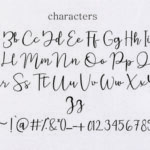 characters
Aa Bb Cc Dd Ee Ff Gg Hh Ii
Ll Mm Nn Oo Pp Qq
Ss Tt Uu Vv Ww Xx
Zz
~!@#%&*()_-+0123456789